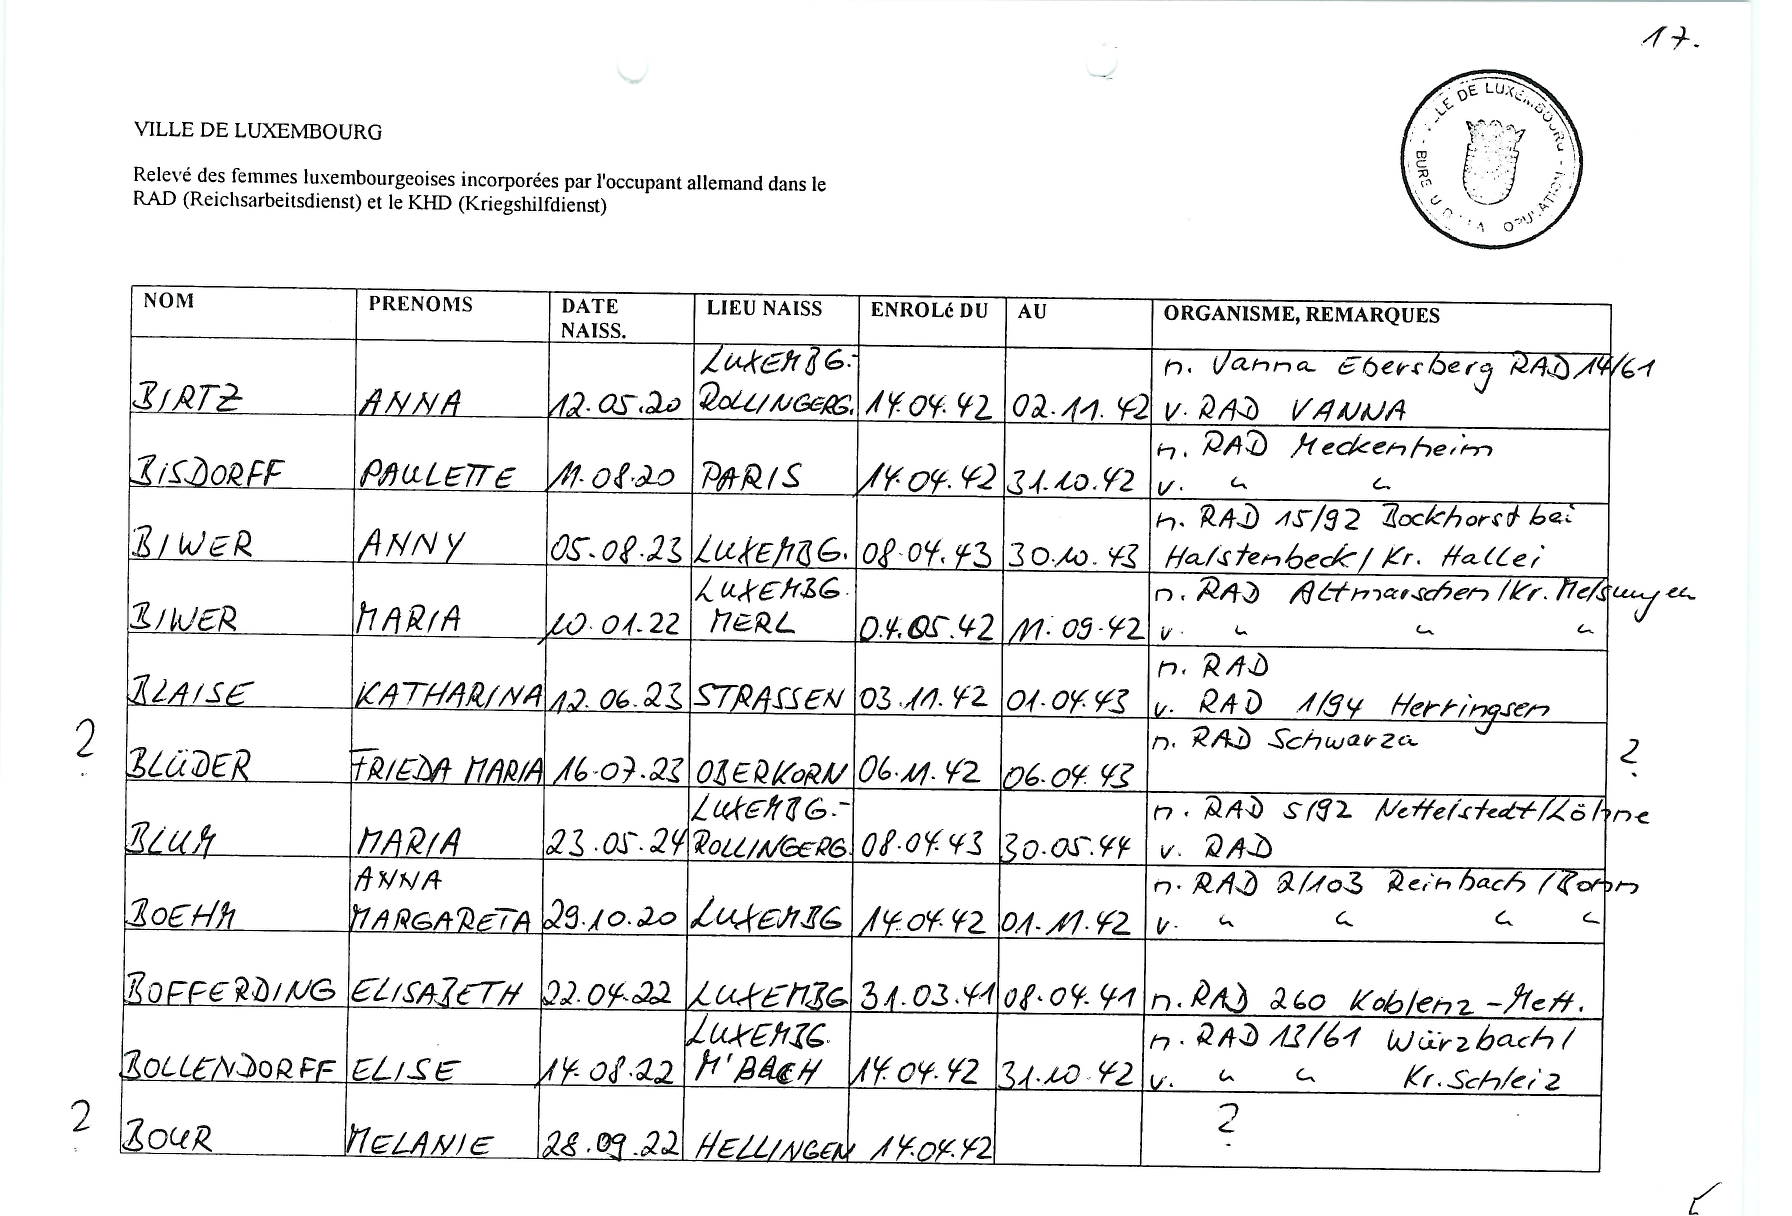 17.
VILLE DE LUXEMBOURG
VILLE DE LUXEMBOURG
Relevé des femmes luxembourgeoises incorporées par l'occupant allemand dans le
RAD (Reichsarbeitsdienst) et le KHD (Kriegshilfdienst)
NOM PRENOMS DATE NAISS. LIEU NAISS ENROLé DU AU ORGANISME, REMARQUES
LUXEMBG.- n. Vanna Ebersberg RAD 14/61
BIRTZ ANNA 12.05.20 ROLLINGERG. 14.04.42 02.11.42 v. RAD VANNA
n. RAD Meckenheim
BISDORFF PAULETTE 11.08.20 PARIS 14.04.42 31.10.42 v. " "
n. RAD 15/92 Bockhorst bei
BIWER ANNY 05.08.23 LUXEMBG. 08.04.43 30.10.43 Halstenbeck / Kr. Hallei
LUXEMBG. n. RAD Altmorschen / Kr. Melsungen
BIWER MARIA 10.01.22 MERL 04.05.42 11.09.42 v. " " "
n. RAD
BLAISE KATHARINA 12.06.23 STRASSEN 03.11.42 01.04.43 v. RAD 1/94 Herringsen
? n. RAD Schwarza ?
BLÜDER FRIEDA MARIA 16.07.23 OBERKORN 06.11.42 06.04.43
LUXEMBG.- n. RAD 5/92 Nettelstedt/Löhne
BLUM MARIA 23.05.24 ROLLINGERG. 08.04.43 30.05.44 v. RAD
ANNA n. RAD 2/103 Reinbach / Bonn
BOEHM MARGARETA 29.10.20 LUXEMBG 14.04.42 01.11.42 v. " " " "
BOFFERDING ELISABETH 22.04.22 LUXEMBG 31.03.41 08.04.41 n. RAD 260 Koblenz - Mett.
LUXEMBG. n. RAD 13/61 Würzbach /
BOLLENDORFF ELISE 14.08.22 M'BACH 14.04.42 31.10.42 v. " " Kr. Schleiz
? ?
BOUR MELANIE 28.09.22 HELLINGEN 14.04.42